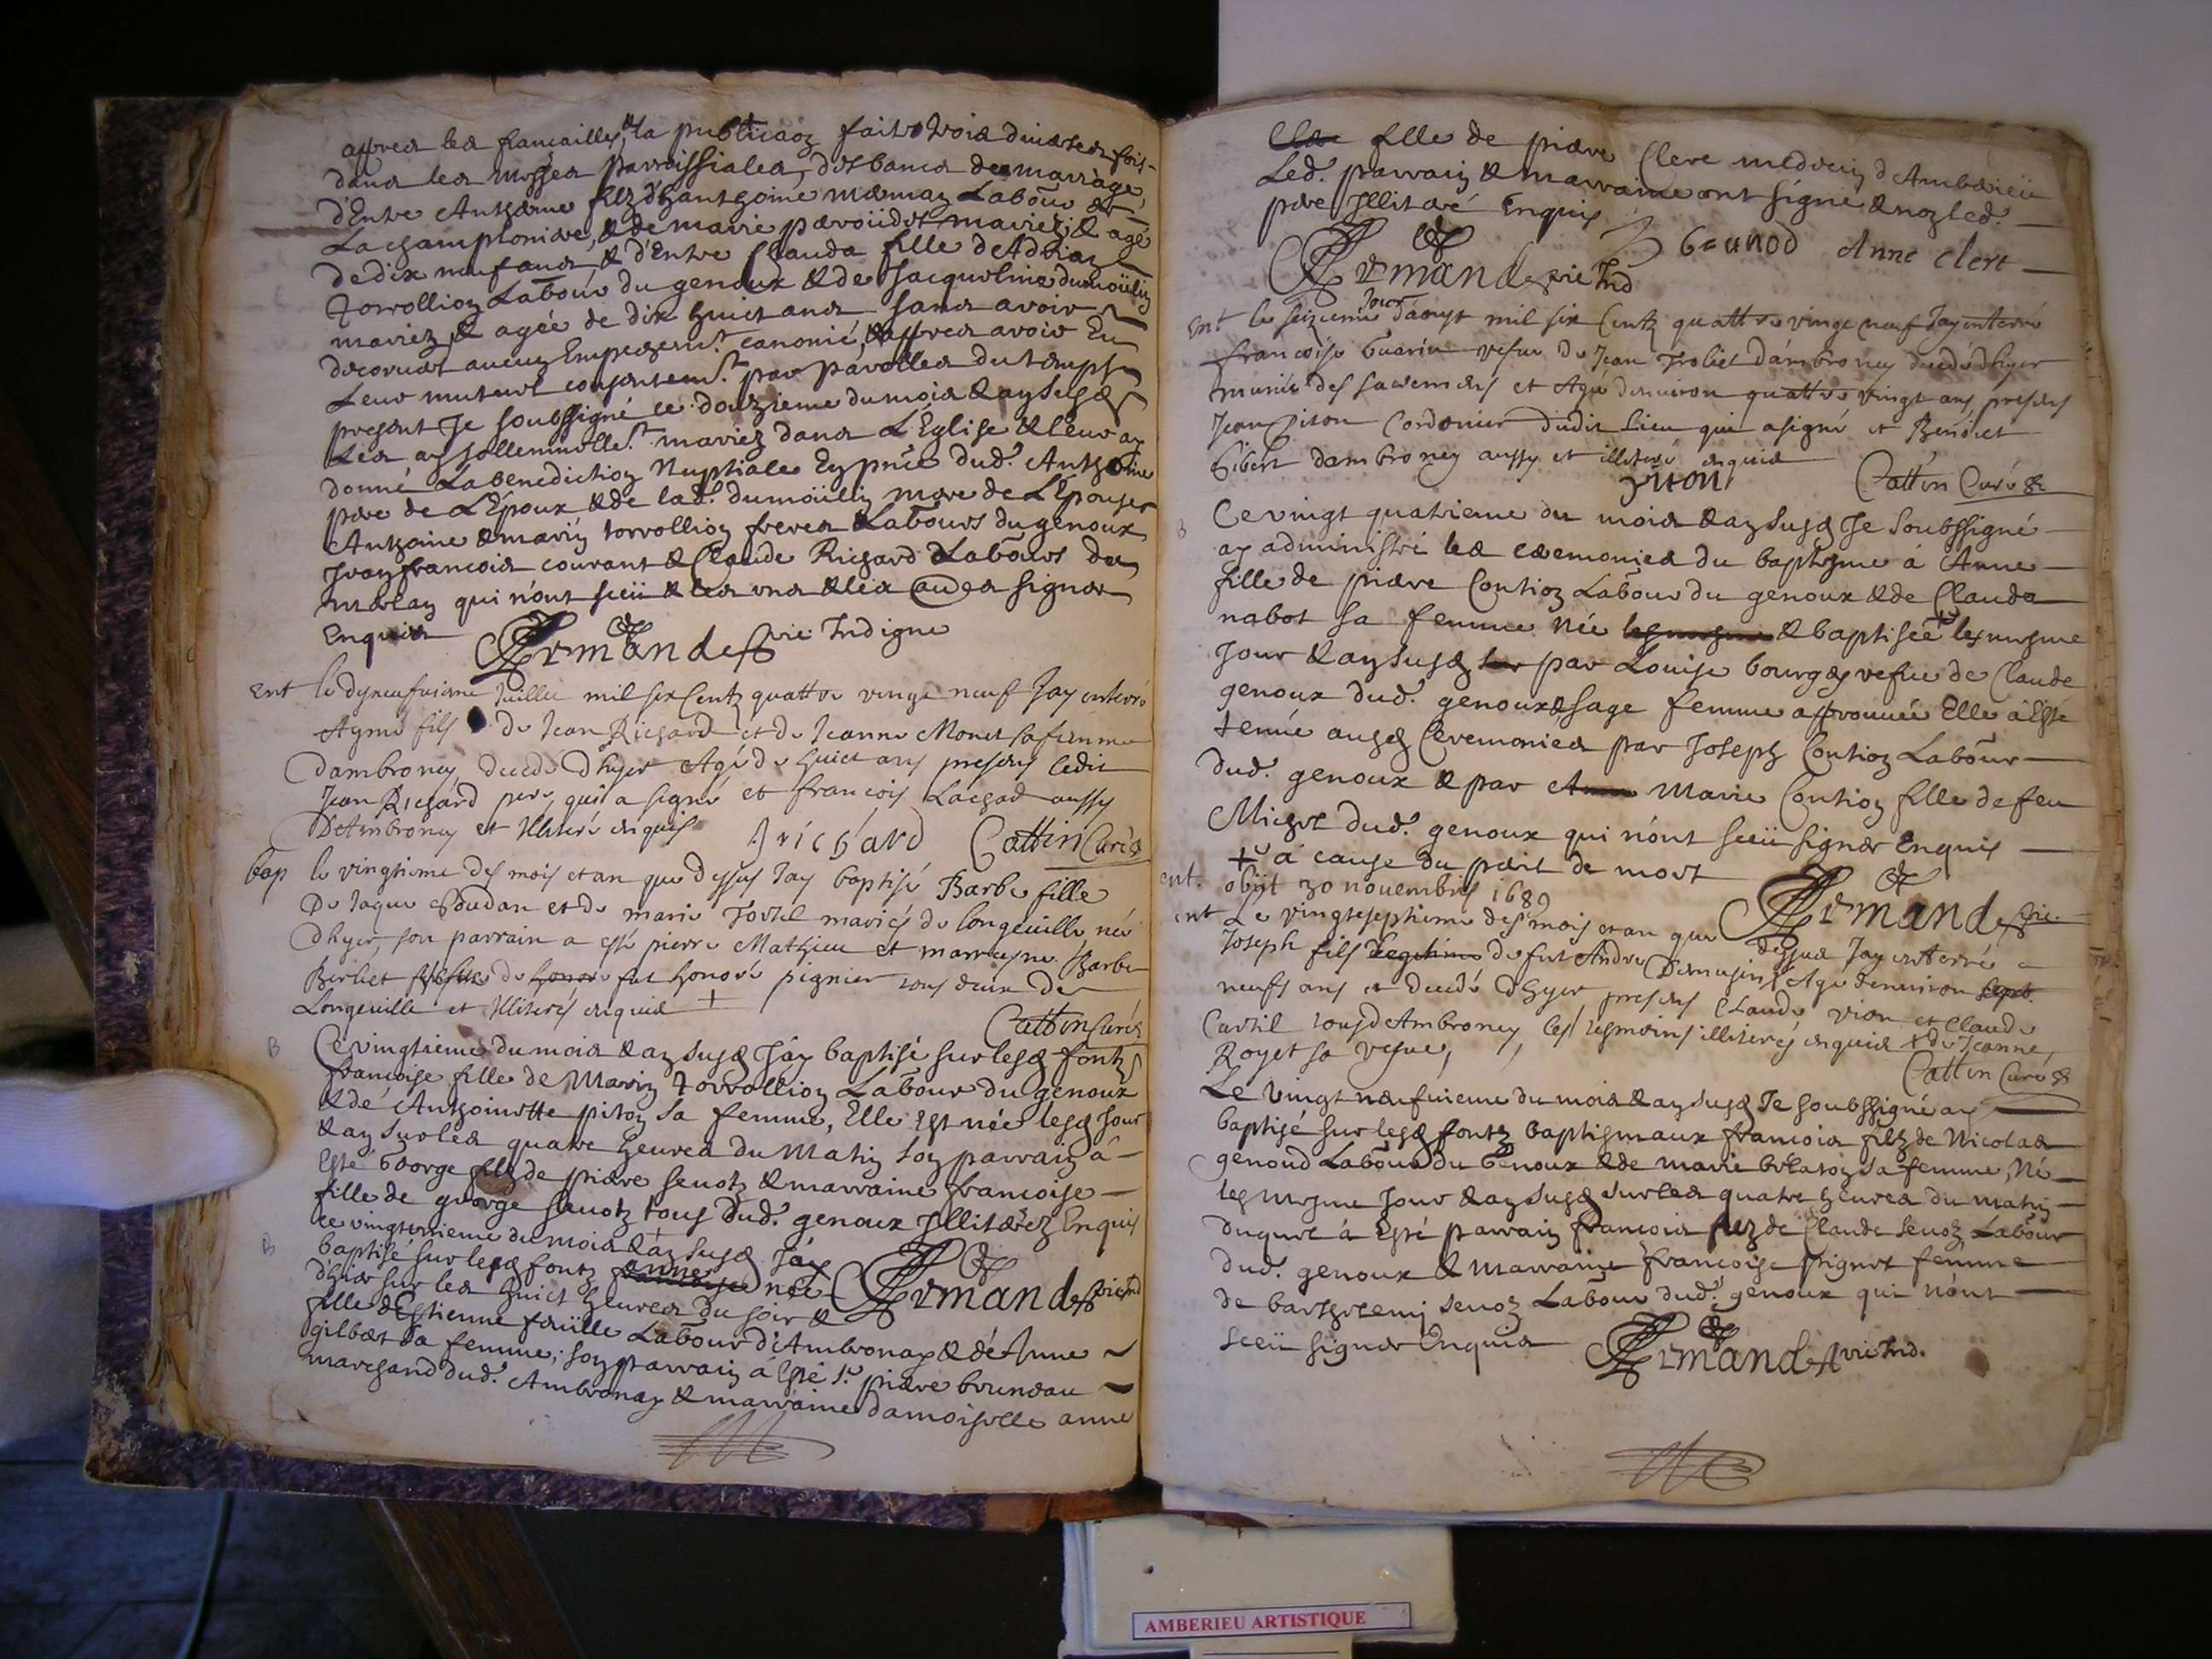 apres les fiancailles, & la publicaõn faite trois diverses fois
dans les messes parroissiales, des bancs de mariage
d'Entre Anthoeme filz d'hanthoine mermaz Labour de
Lachamploniere, & de marie mariez & agé
de dix neuf ans, & d'Entre Clauda fille d'Adrian
Torrollion Labour du genoux & de Jacqueline dumoüilin
mariez, & agée de dix huict ans sans avoir
decouvert aucun Empechem.t canonic, & appres avoir Eu
Leur mutuel consentem.t par parolles du temps
present Je soubssigné ce douzieme du mois & an susd
Les ay sollennelle.t mariez dans L'Eglise & leur ay
donné La benediction Nuptiale En prñce dud. Anthoine
pere de L'Epoux & de lad. dumoüilin mere de L'Epouse
Anthoine & marin torrollion freres Labours du genoux
Jean francois courant & Claude Richard Labours de
merlan qui n'ont sceü & les uns & les autres signer
Enquis Armand vic Indigne
Ent le dyneufuieme Juillet mil six Centz quattre vingt neuf Jay enterré
Aymé fils de Jean Richard et de Jeanne Monet sa femme
Dambroney decedé dhyer Agé de huict ans presens ledit
Jean Richard pere qui a signé et francois Lachad aussy
DeAmbroney et Illiteré enquis J richard Cattin Curé
bap le vingtieme des mois et an que dessus Jay baptisé Barbe fille
De Jaque Boudan et de marie Tortel mariés de longeuille née
dhyer, son parrain a esté pierre Mathieu et marreyne Barbe
Berliet vefue de honore fut honoré pignier tous deux de
Longeuille et Illiterés enquis +
Cattin Curé
B Ce vingtieme du mois & an susd J'ay baptisé sur lesd fontz
francoise fille de Marin Torrollion Labour du genoux
& de Anthoinette piton sa femme, Elle Est née lesd Jour
& an sur les quatre heures du Matin son parrain à
Esté George filz de piere senotz & marraine francoise
fille de george senotz tous dud. genoux Jlliterez Enquis
B ce vingtunieme du mois & an susd J'ay
baptisé sur lesd fontz francoise anne née Armand vic Ind
d'hier sur les huict heures du soir &
fille d'Estienne feüille Labour d'Ambronay & de Anne
gilbert sa femme; son parrain à Esté s.r piere bruneau
marchand dud. Ambronay & marraine damoiselle anne
Cler fille de piere Clerc medecin d'Amberieü
Led. parrain & marraine ont signé & non led.
pere Jlliteré Enquis
Armand vic Ind Anne Clert
Ent le seizieme Jour daoust mil six Centz quattre vinge neuf Jay enterré
francoise Guarin vefue de Jean Troliet dAmbroney decedé dhyer
munie des sacremens et Agé denuiron quattre vingt ans presens
Jean piton Cordonier dudit lieu qui a signé et Benoict
Gibert dambroney aussy et illiteré enquis
piton Cattin Curé
B Ce vingt quatrieme du mois & an susd Je Soubssigné
ay administré les ceremonies du baptesme à Anne
fille de piere Contion Labour du genoux & de Clauda
nabot sa femme née lesmesme & baptisée + lesmesme
Jour & an susd par Louise bourges vefue de Claude
genoux dud. genoux & sage femme approuuée Elle à Esté
tenüe ausd Ceremonies par Joseph Contion Labour
dud. genoux & par Anne Marie Contion fille de feu
Michel dud. genoux qui n'ont sceü signer Enquis
+ à cause du peril de mort
ent. obiit 30 novembris 1689 Armand vic.
ent Le vingtseptieme des mois et an que dessus Jay enterré
Joseph fils legitime de fut Andre Demusin Agé denuiron sept
neufs ans et decedé dhyer presens Claude vion et Claude
Cartil tous dAmbroney les tesmoins illiterés enquis & de Jeanne
Royet sa vefue,
Cattin Curé
Le vingt neufuieme du mois & an susd Je soubssigné ay
baptisé sur lesd fontz baptismaux francois filz de Nicolas
genoud Labour du Genoux & de marie sa femme, Né
les mesme Jour & an susd sur les quatre heures du matin
duquel à Esté parrain francois filz de Claude senoz Labour
dud. genoux & Marraine francoise pignet femme
de bartholemi senoz Labour dud. genoux qui n'ont
sceü signer Enquis Armand vic Ind.
AMBERIEU ARTISTIQUE